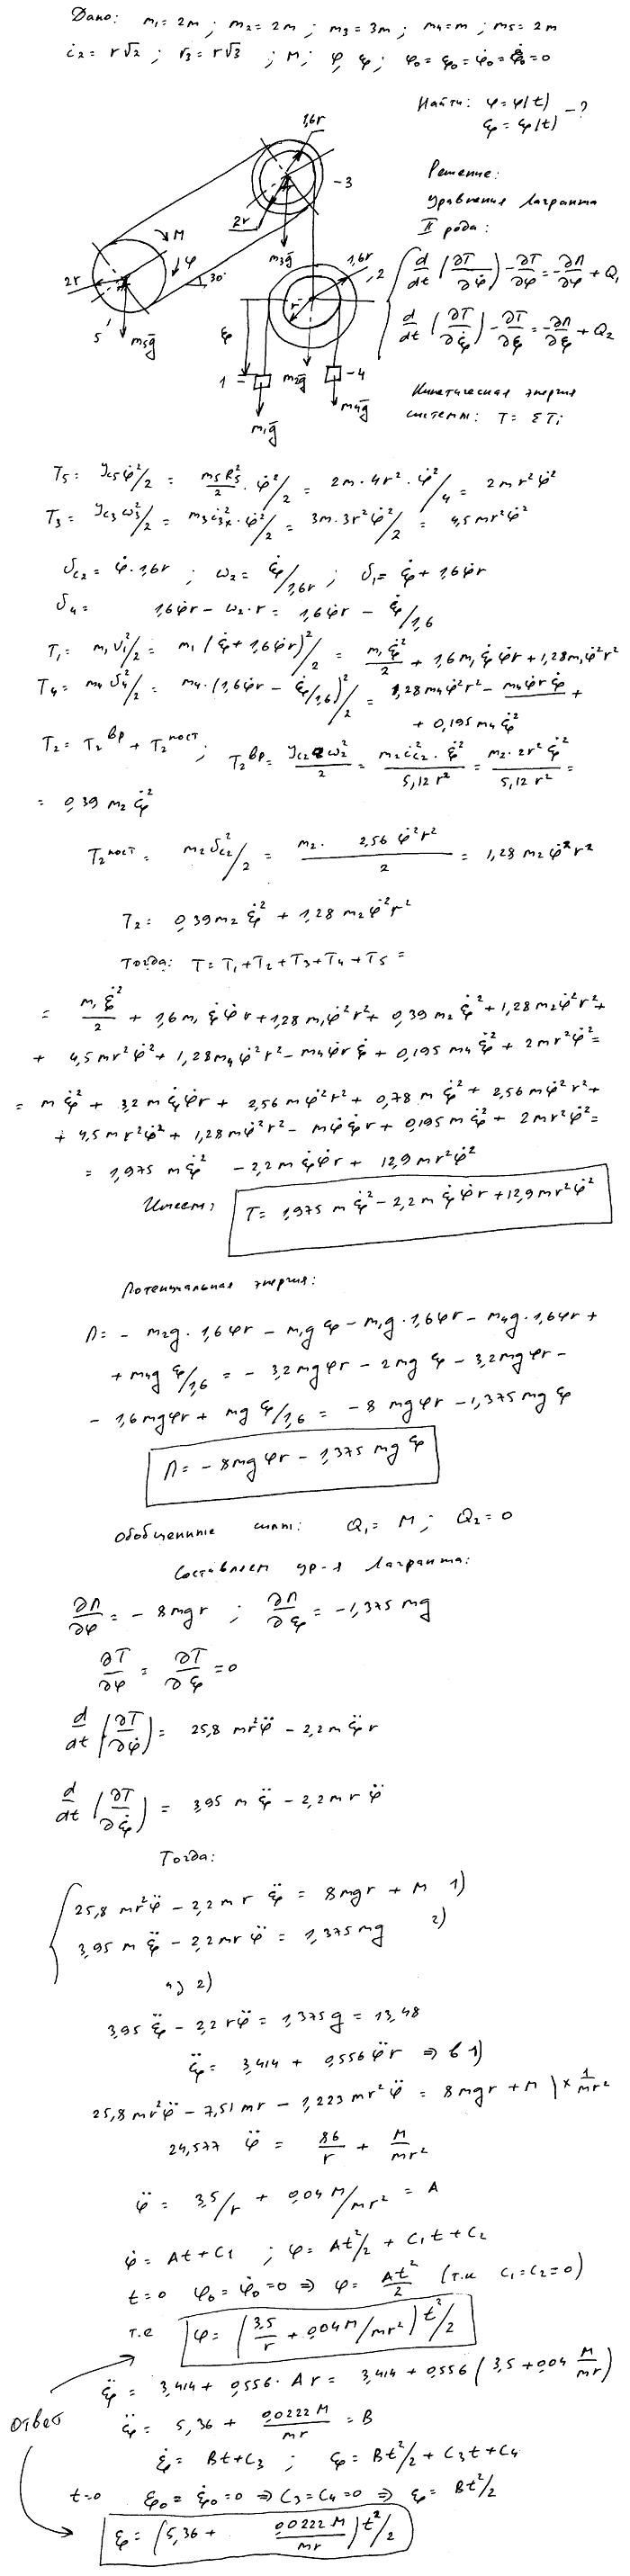 Дано: m₁=2m ; m₂=2m ; m₃=3m ; m₄=m ; m₅=2m
i₂=r√2 ; r₃=r√3 ; M ; φ, ξ ; φ₀=ξ₀=φ̇₀=ξ̇₀=0
Найти: φ=φ(t)
ξ=ξ(t) -?
1,6r
-3
2r
m₃g̅
M
φ
2r
30°
5
m₅g̅
1,6r
2
r
ξ
1-
m₁g̅
m₂g̅
-4
m₄g̅
Решение:
уравнения Лагранжа
II рода:
d/dt (∂T/∂φ̇) - ∂T/∂φ = -∂П/∂φ + Q₁
d/dt (∂T/∂ξ̇) - ∂T/∂ξ = -∂П/∂ξ + Q₂
Кинетическая энергия
системы: T= ΣTᵢ
T₅= Jc₅φ̇²/2 = m₅R₅²/2 · φ̇²/2 = 2m·4r²·φ̇²/4 = 2mr²φ̇²
T₃= Jc₃ω₃²/2 = m₃i₃ₓ²·φ̇²/2 = 3m·3r²φ̇²/2 = 4,5mr²φ̇²
υc₂= φ̇·1,6r ; ω₂= ξ̇/1,6r ; υ₁= ξ̇+1,6φ̇r
υ₄= 1,6φ̇r - ω₂·r = 1,6φ̇r - ξ̇/1,6
T₁= m₁υ₁²/2 = m₁(ξ̇+1,6φ̇r)²/2 = m₁ξ̇²/2 + 1,6m₁ξ̇φ̇r+1,28m₁φ̇²r²
T₄= m₄υ₄²/2 = m₄·(1,6φ̇r - ξ̇/1,6)²/2 = 1,28m₄φ̇²r² - m₄φ̇rξ̇ +
+ 0,195m₄ξ̇²
T₂= T₂ᵇᵖ + T₂ᵖᵒˢᵗ ; T₂ᵇᵖ= Jc₂ω₂²/2 = m₂ic₂²·ξ̇²/5,12r² = m₂·2r²ξ̇²/5,12r² =
= 0,39m₂ξ̇²
T₂ᵖᵒˢᵗ= m₂υc₂²/2 = m₂·2,56φ̇²r²/2 = 1,28m₂φ̇²r²
T₂= 0,39m₂ξ̇² + 1,28m₂φ̇²r²
Тогда: T=T₁+T₂+T₃+T₄+T₅ =
= m₁ξ̇²/2 + 1,6m₁ξ̇φ̇r+1,28m₁φ̇²r²+ 0,39m₂ξ̇²+1,28m₂φ̇²r²+
+ 4,5mr²φ̇²+1,28m₄φ̇²r²- m₄φ̇rξ̇ + 0,195m₄ξ̇²+ 2mr²φ̇²=
= mξ̇²+ 3,2mξ̇φ̇r + 2,56mφ̇²r²+ 0,78mξ̇²+ 2,56mφ̇²r²+
+ 4,5mr²φ̇²+ 1,28mφ̇²r²- mφ̇ξ̇r + 0,195mξ̇²+ 2mr²φ̇²=
= 1,975mξ̇² -2,2mξ̇φ̇r + 12,9mr²φ̇²
Имеем: T= 1,975mξ̇²-2,2mξ̇φ̇r+12,9mr²φ̇²
Потенциальная энергия:
П= - m₂g·1,6φr - m₁gξ - m₁g·1,6φr - m₄g·1,6φr +
+ m₄gξ/1,6 = - 3,2mgφr - 2mgξ - 3,2mgφr -
- 1,6mgφr + mgξ/1,6 = -8mgφr -1,375mgξ
П= -8mgφr - 1,375mgξ
Обобщенные силы: Q₁= M ; Q₂=0
Составляем ур-я Лагранжа:
∂П/∂φ = - 8mgr ; ∂П/∂ξ = -1,375mg
∂T/∂φ = ∂T/∂ξ =0
d/dt (∂T/∂φ̇) = 25,8mr²φ̈ - 2,2mξ̈r
d/dt (∂T/∂ξ̇) = 3,95mξ̈ - 2,2mrφ̈
Тогда:
25,8mr²φ̈ - 2,2mrξ̈ = 8mgr + M 1)
3,95mξ̈ - 2,2mrφ̈ = 1,375mg 2)
из 2)
3,95ξ̈ - 2,2rφ̈ = 1,375g = 13,48
ξ̈ = 3,414 + 0,556φ̈r ⇒ в 1)
25,8mr²φ̈ - 7,51mr - 1,223mr²φ̈ = 8mgr + M | × 1/mr²
24,577φ̈ = 86/r + M/mr²
φ̈ = 3,5/r + 0,04M/mr² = A
φ̇= At+C₁ ; φ= At²/2 + C₁t+C₂
t=0 φ₀=φ̇₀=0 ⇒ φ= At²/2 (т.к C₁=C₂=0)
т.е φ= (3,5/r + 0,04M/mr²) t²/2
ξ̈ = 3,414+ 0,556·Ar = 3,414+0,556(3,5+0,04 M/mr)
Ответ
ξ̈ = 5,36 + 0,0222M/mr = B
ξ̇= Bt+C₃ ; ξ= Bt²/2 + C₃t+C₄
t=0 ξ₀=ξ̇₀=0 ⇒ C₃=C₄=0 ⇒ ξ= Bt²/2
ξ= (5,36 + 0,0222M/mr) t²/2